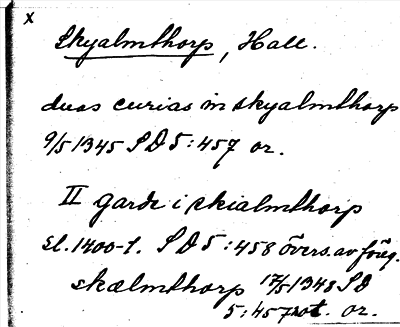 x
Skyalmthorp, Hall.
duas curias in skyalmthorp
9/5 1345 SD 5:457 or.
II garde i skialmthorp
sl. 1400-t. SD 5:458 övers. av föreg.
skælmthorp 17/5 1348 SD
5:457 not. or.